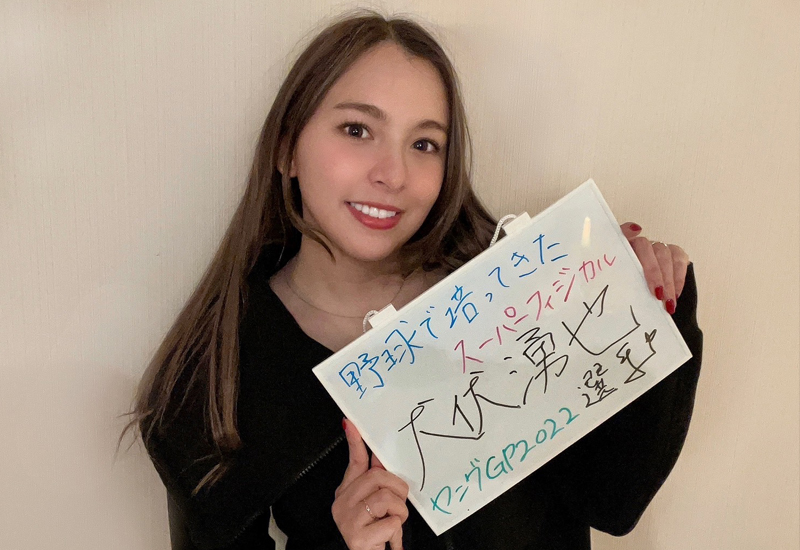 野球で培ってきた
スーパーフィジカル
犬伏湧也
選手
ヤンググGP2022